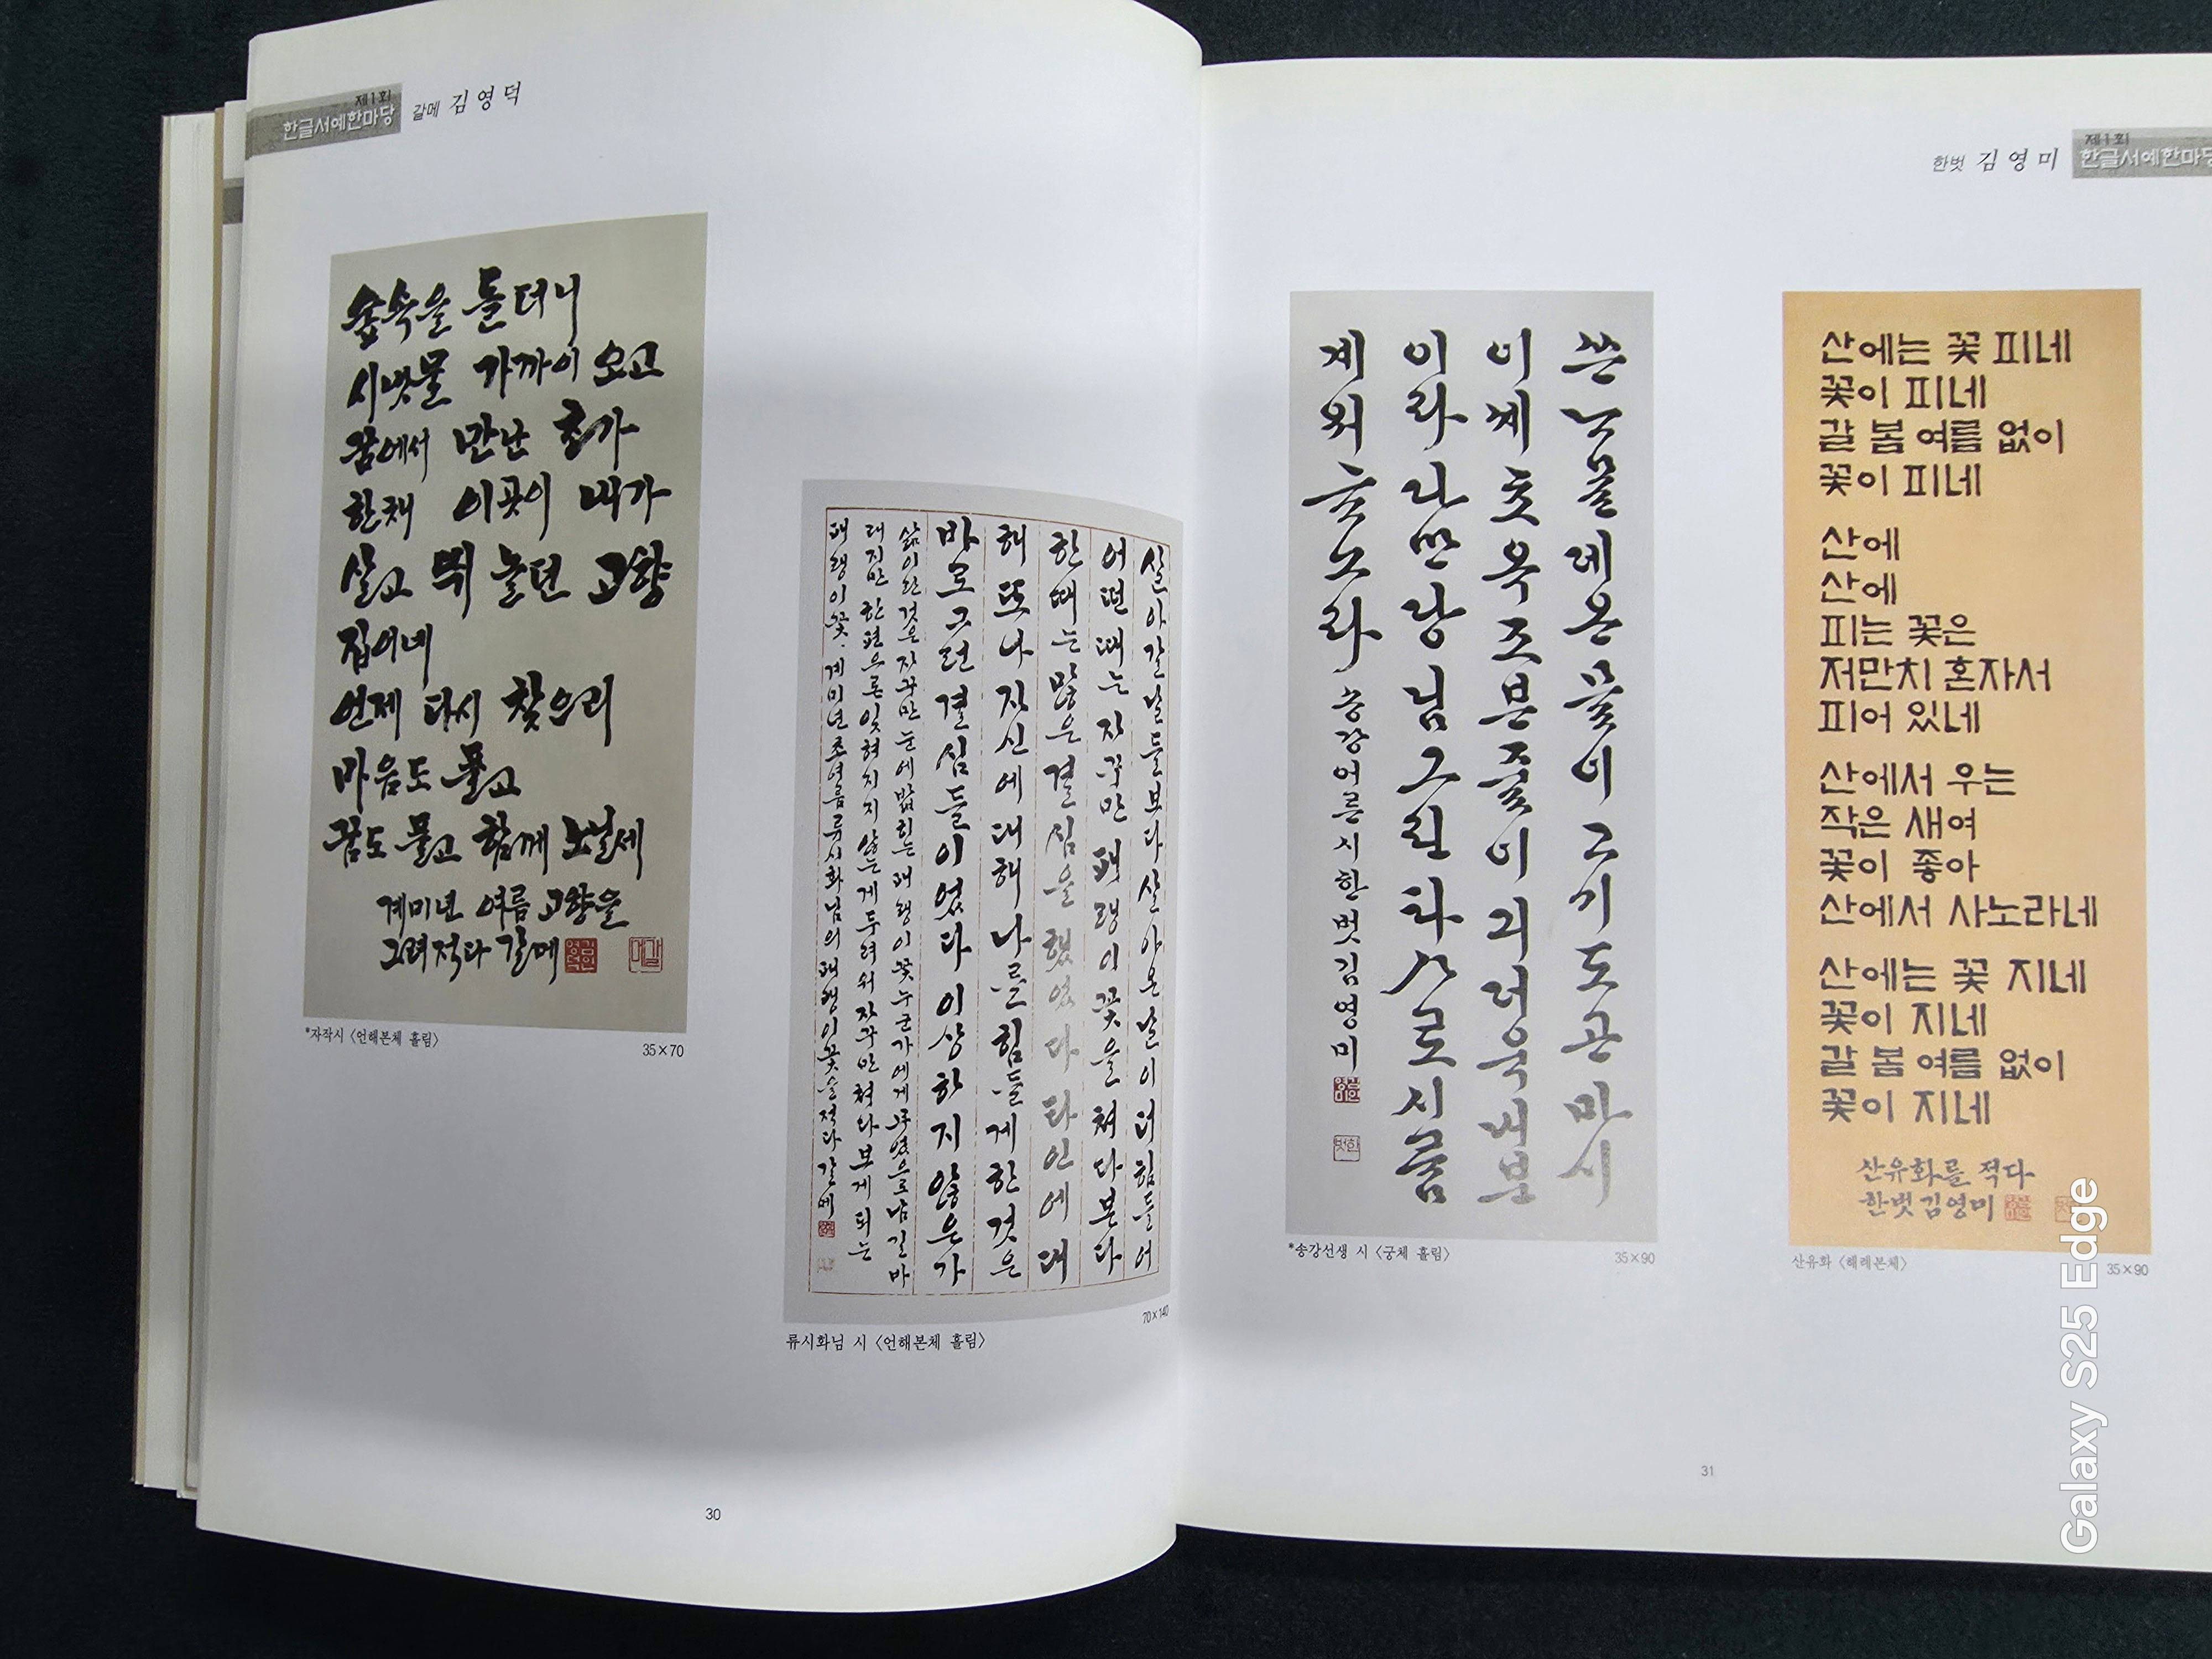 제1회
한글서예한마당
갈메 김영덕
숲속을 돌더니
시냇물 가까이 오고
꿈에서 만난 초가
한채 이곳이 내가
살고 뛰놀던 고향
집이네
언제 다시 찾으리
마음도 풀고
꿈도 풀고 함께 노닐세
계미년 여름 고향을
그려 적다 갈메
*자작시 〈언해본체 흘림〉
35×70
살아갈날들보다살아온날이더힘들어
어떤때는자꾸만패랭이꽃을쳐다본다
한때는많은결심을했었다타인에대
해또나자신에대해나를힘들게한것은
바로그런결심들이었다이상하지않은가
삶이란것은자꾸만눈에밟히는패랭이꽃누군가에게무엇으로남길바
라지만한편으론잊혀지지않는게두려워자꾸만쳐다보게되는
패랭이꽃.계미년초여름류시화님의패랭이꽃을적다갈메
70×140
류시화님 시 〈언해본체 흘림〉
30
한벗 김영미
제1회
한글서예한마당
쓴ᄂᆞ믈데온믈이고기도곤마시
이셰초옥조븐줄이긔더욱내분
이라다만당님그린타ᄉᆞ로시름
계워ᄒᆞ노라 송강어른시한벗김영미
*송강선생 시 〈궁체 흘림〉
35×90
산에는 꽃 피네
꽃이 피네
갈 봄 여름 없이
꽃이 피네
산에
산에
피는 꽃은
저만치 혼자서
피어 있네
산에서 우는
작은 새여
꽃이 좋아
산에서 사노라네
산에는 꽃 지네
꽃이 지네
갈 봄 여름 없이
꽃이 지네
산유화를 적다
한벗 김영미
산유화 〈해례본체〉
35×90
31
Galaxy S25 Edge